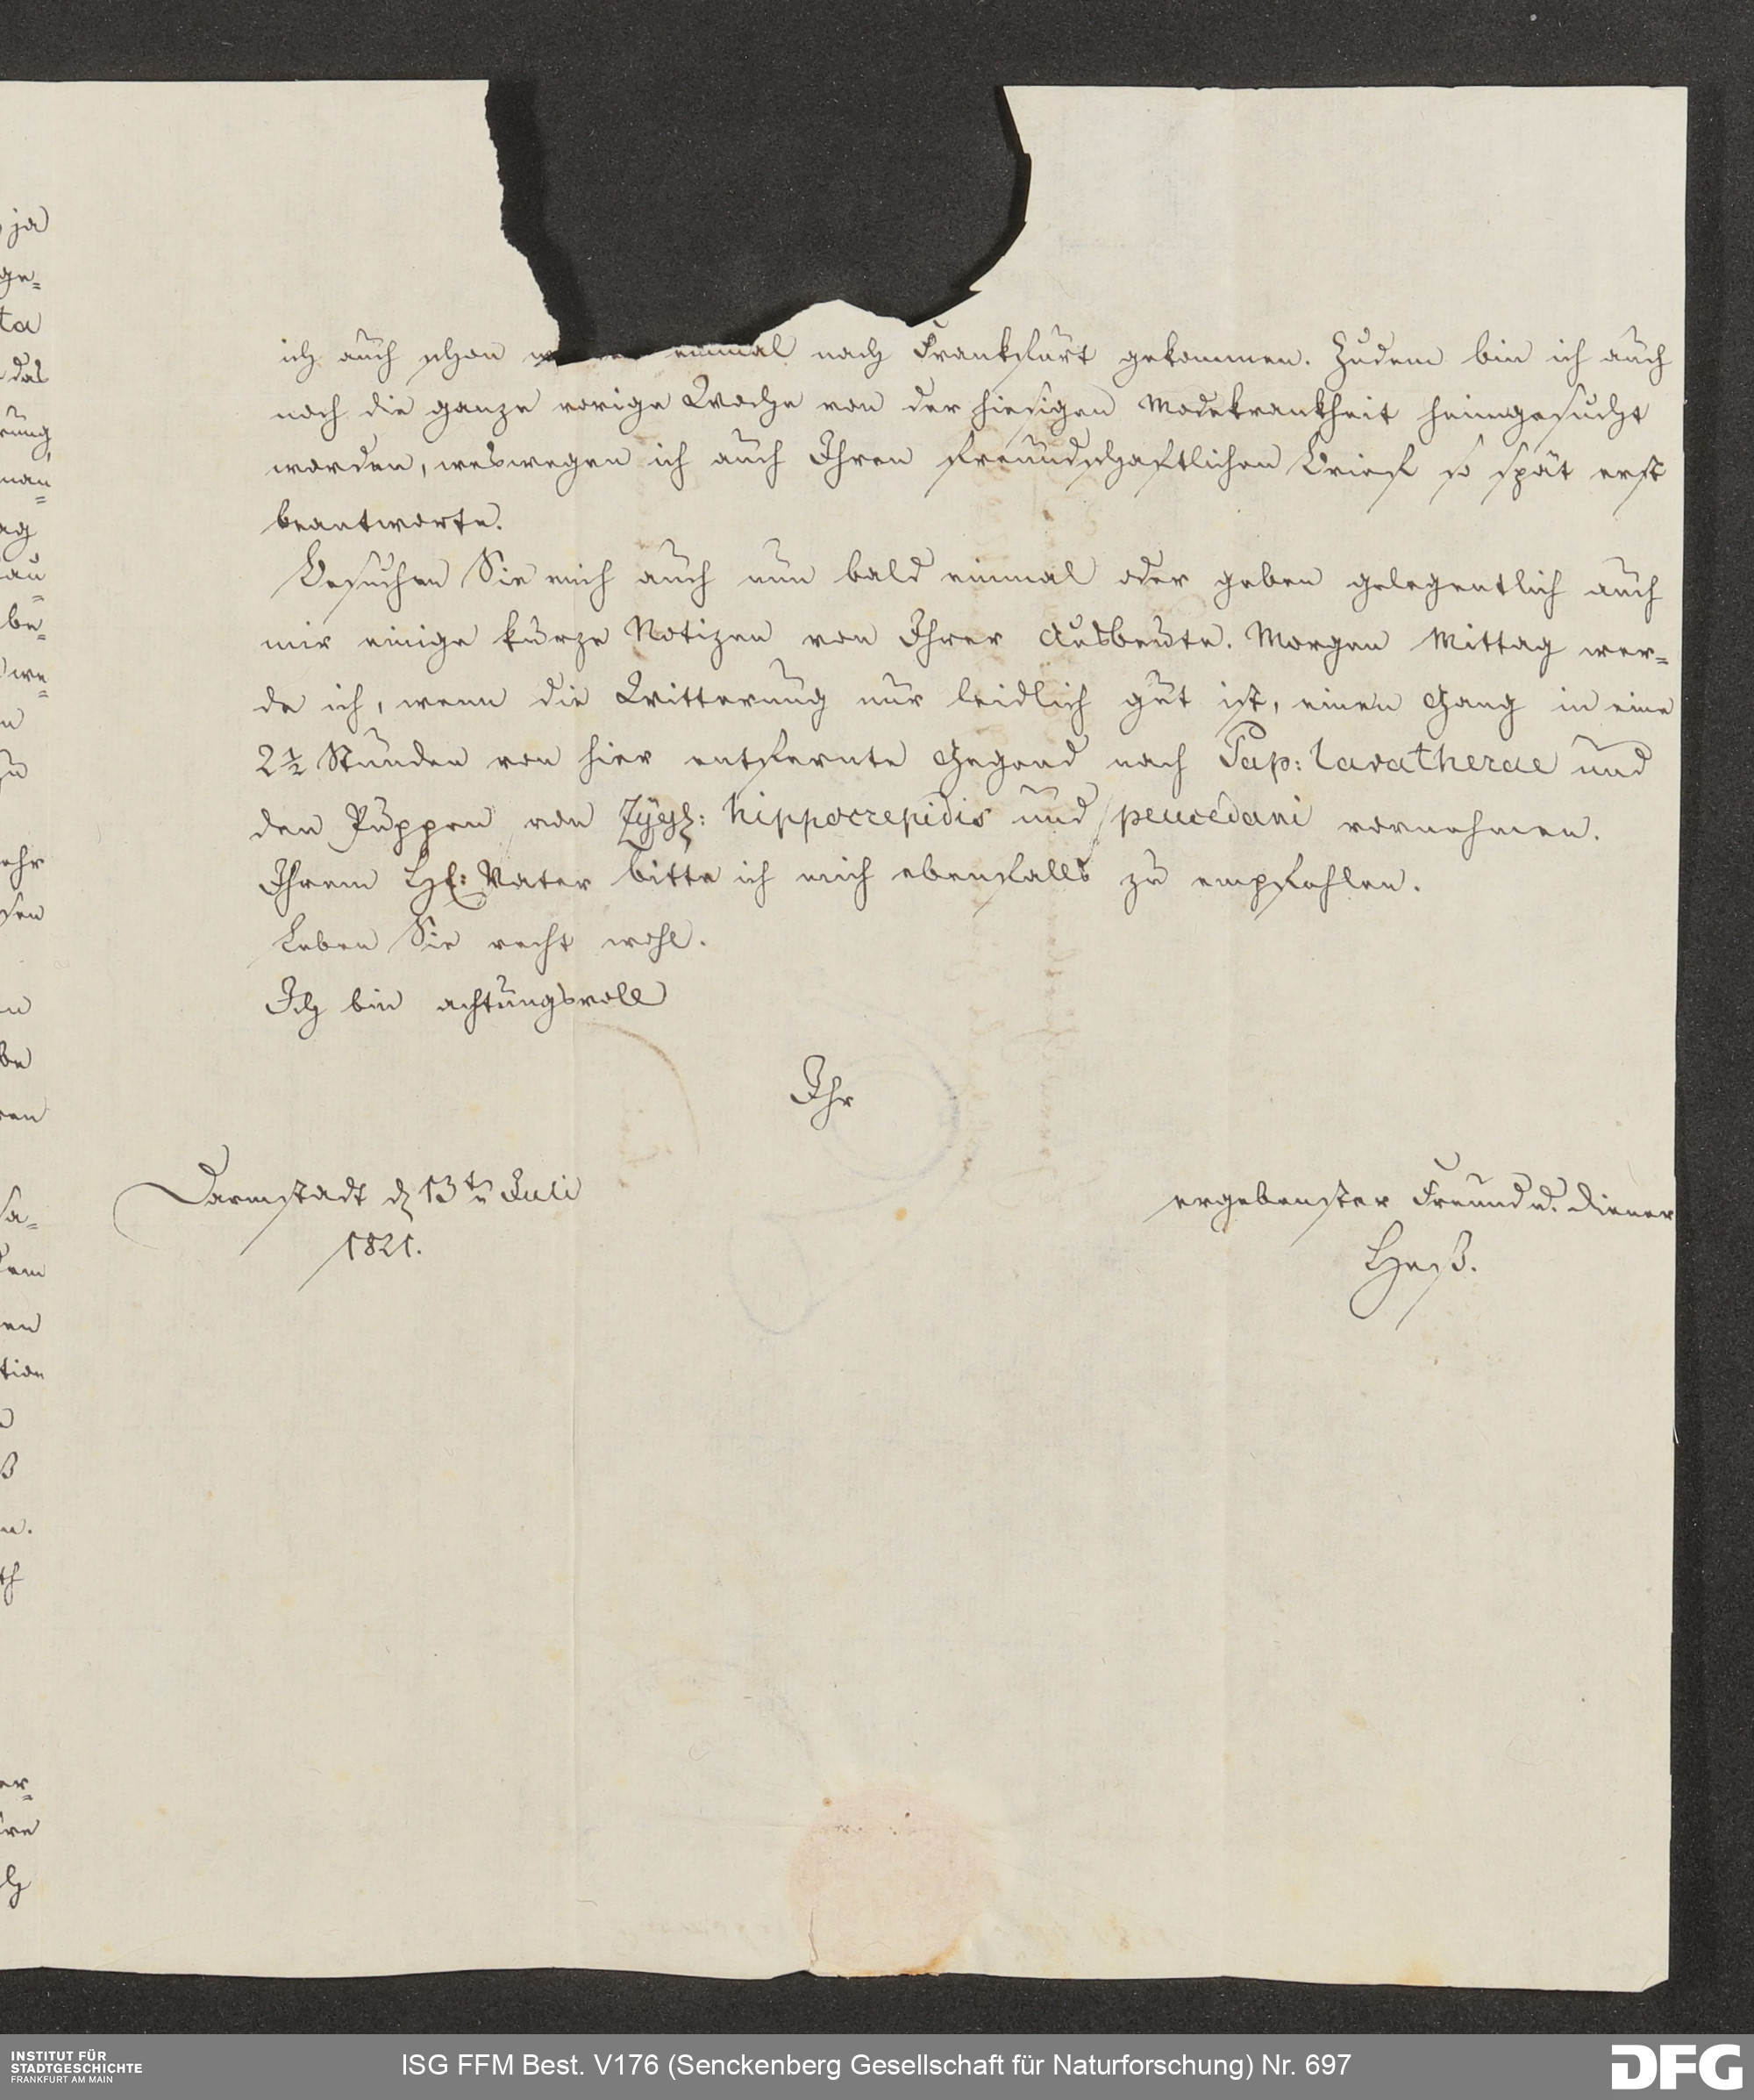 ja
ge=
ta
das
rung,
man
=
ag
au
=
be=
we=
n
zu
ehr
sen
n
be
ren
sa=
dem
en
tion
ß
n.
th
er=
ere
ich auch schon wieder einmal nach Frankfurt gekommen. Zudem bin ich auch
noch die ganze vorige Woche von der hiesigen Modekrankheit heimgesucht
worden, weswegen ich auch Ihren freundschaftlichen Brief so spät erst
beantworte.
Besuchen Sie mich auch nun bald einmal oder geben gelegentlich auch
mir einige kurze Notizen von Ihrer Ausbeute. Morgen Mittag wer=
de ich, wenn die Witterung nur leidlich gut ist, einen Gang in eine
2½ Stunden von hier entfernte Gegend nach Pap: lavatherae und
den Puppen von Zyg: hippocrepidis und peucedani vornehmen.
Ihrem H: Vater bitte ich mich ebenfalls zu empfehlen.
Leben Sie recht wohl.
Ich bin achtungsvoll
Ihr
Darmstadt d 13tn Juli
1821.
ergebenster Freund u. Diener
Heß.
INSTITUT FÜR
STADTGESCHICHTE
FRANKFURT AM MAIN
ISG FFM Best. V176 (Senckenberg Gesellschaft für Naturforschung) Nr. 697
DFG